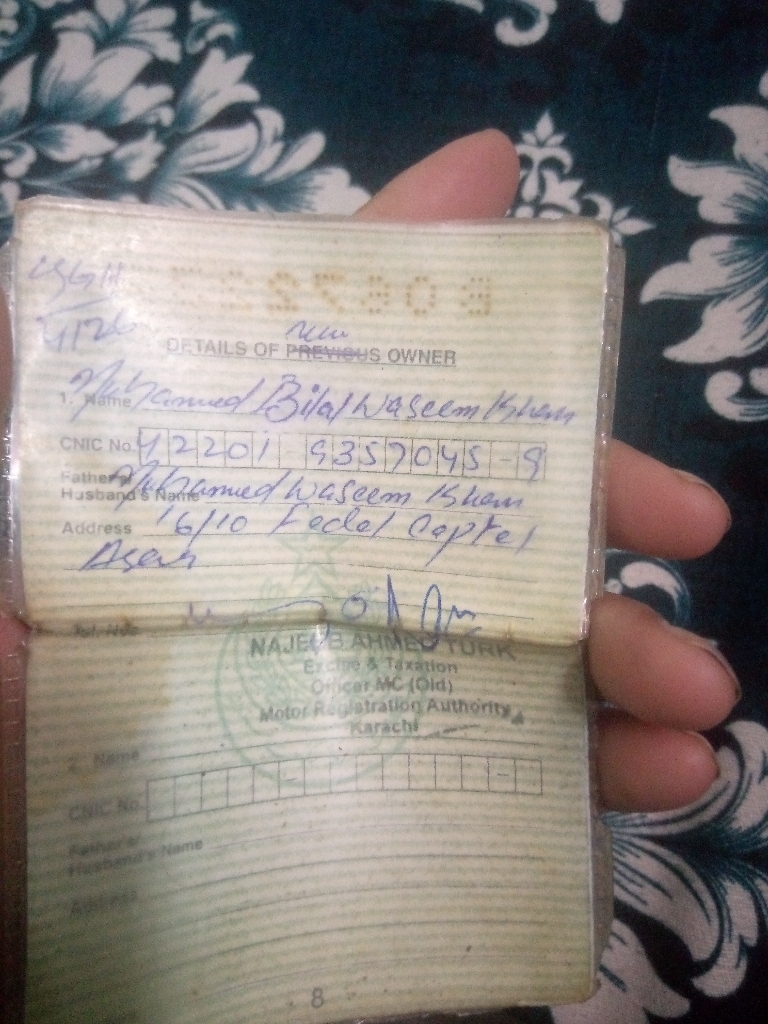 DETAILS OF PREVIOUS OWNER
new
1. Name Muhammed Bilal Waseem Khan
CNIC No. 42201-9357045-9
Father's/
Husband's Name Muhammed Waseem Khan
Address 16/10 Fedel Captel
NAJEEB AHMED TURK
Excise & Taxation
Officer MC (Old)
Motor Registration Authority
Karachi
2. Name
CNIC No.
Father's/
Husband's Name
Address
8